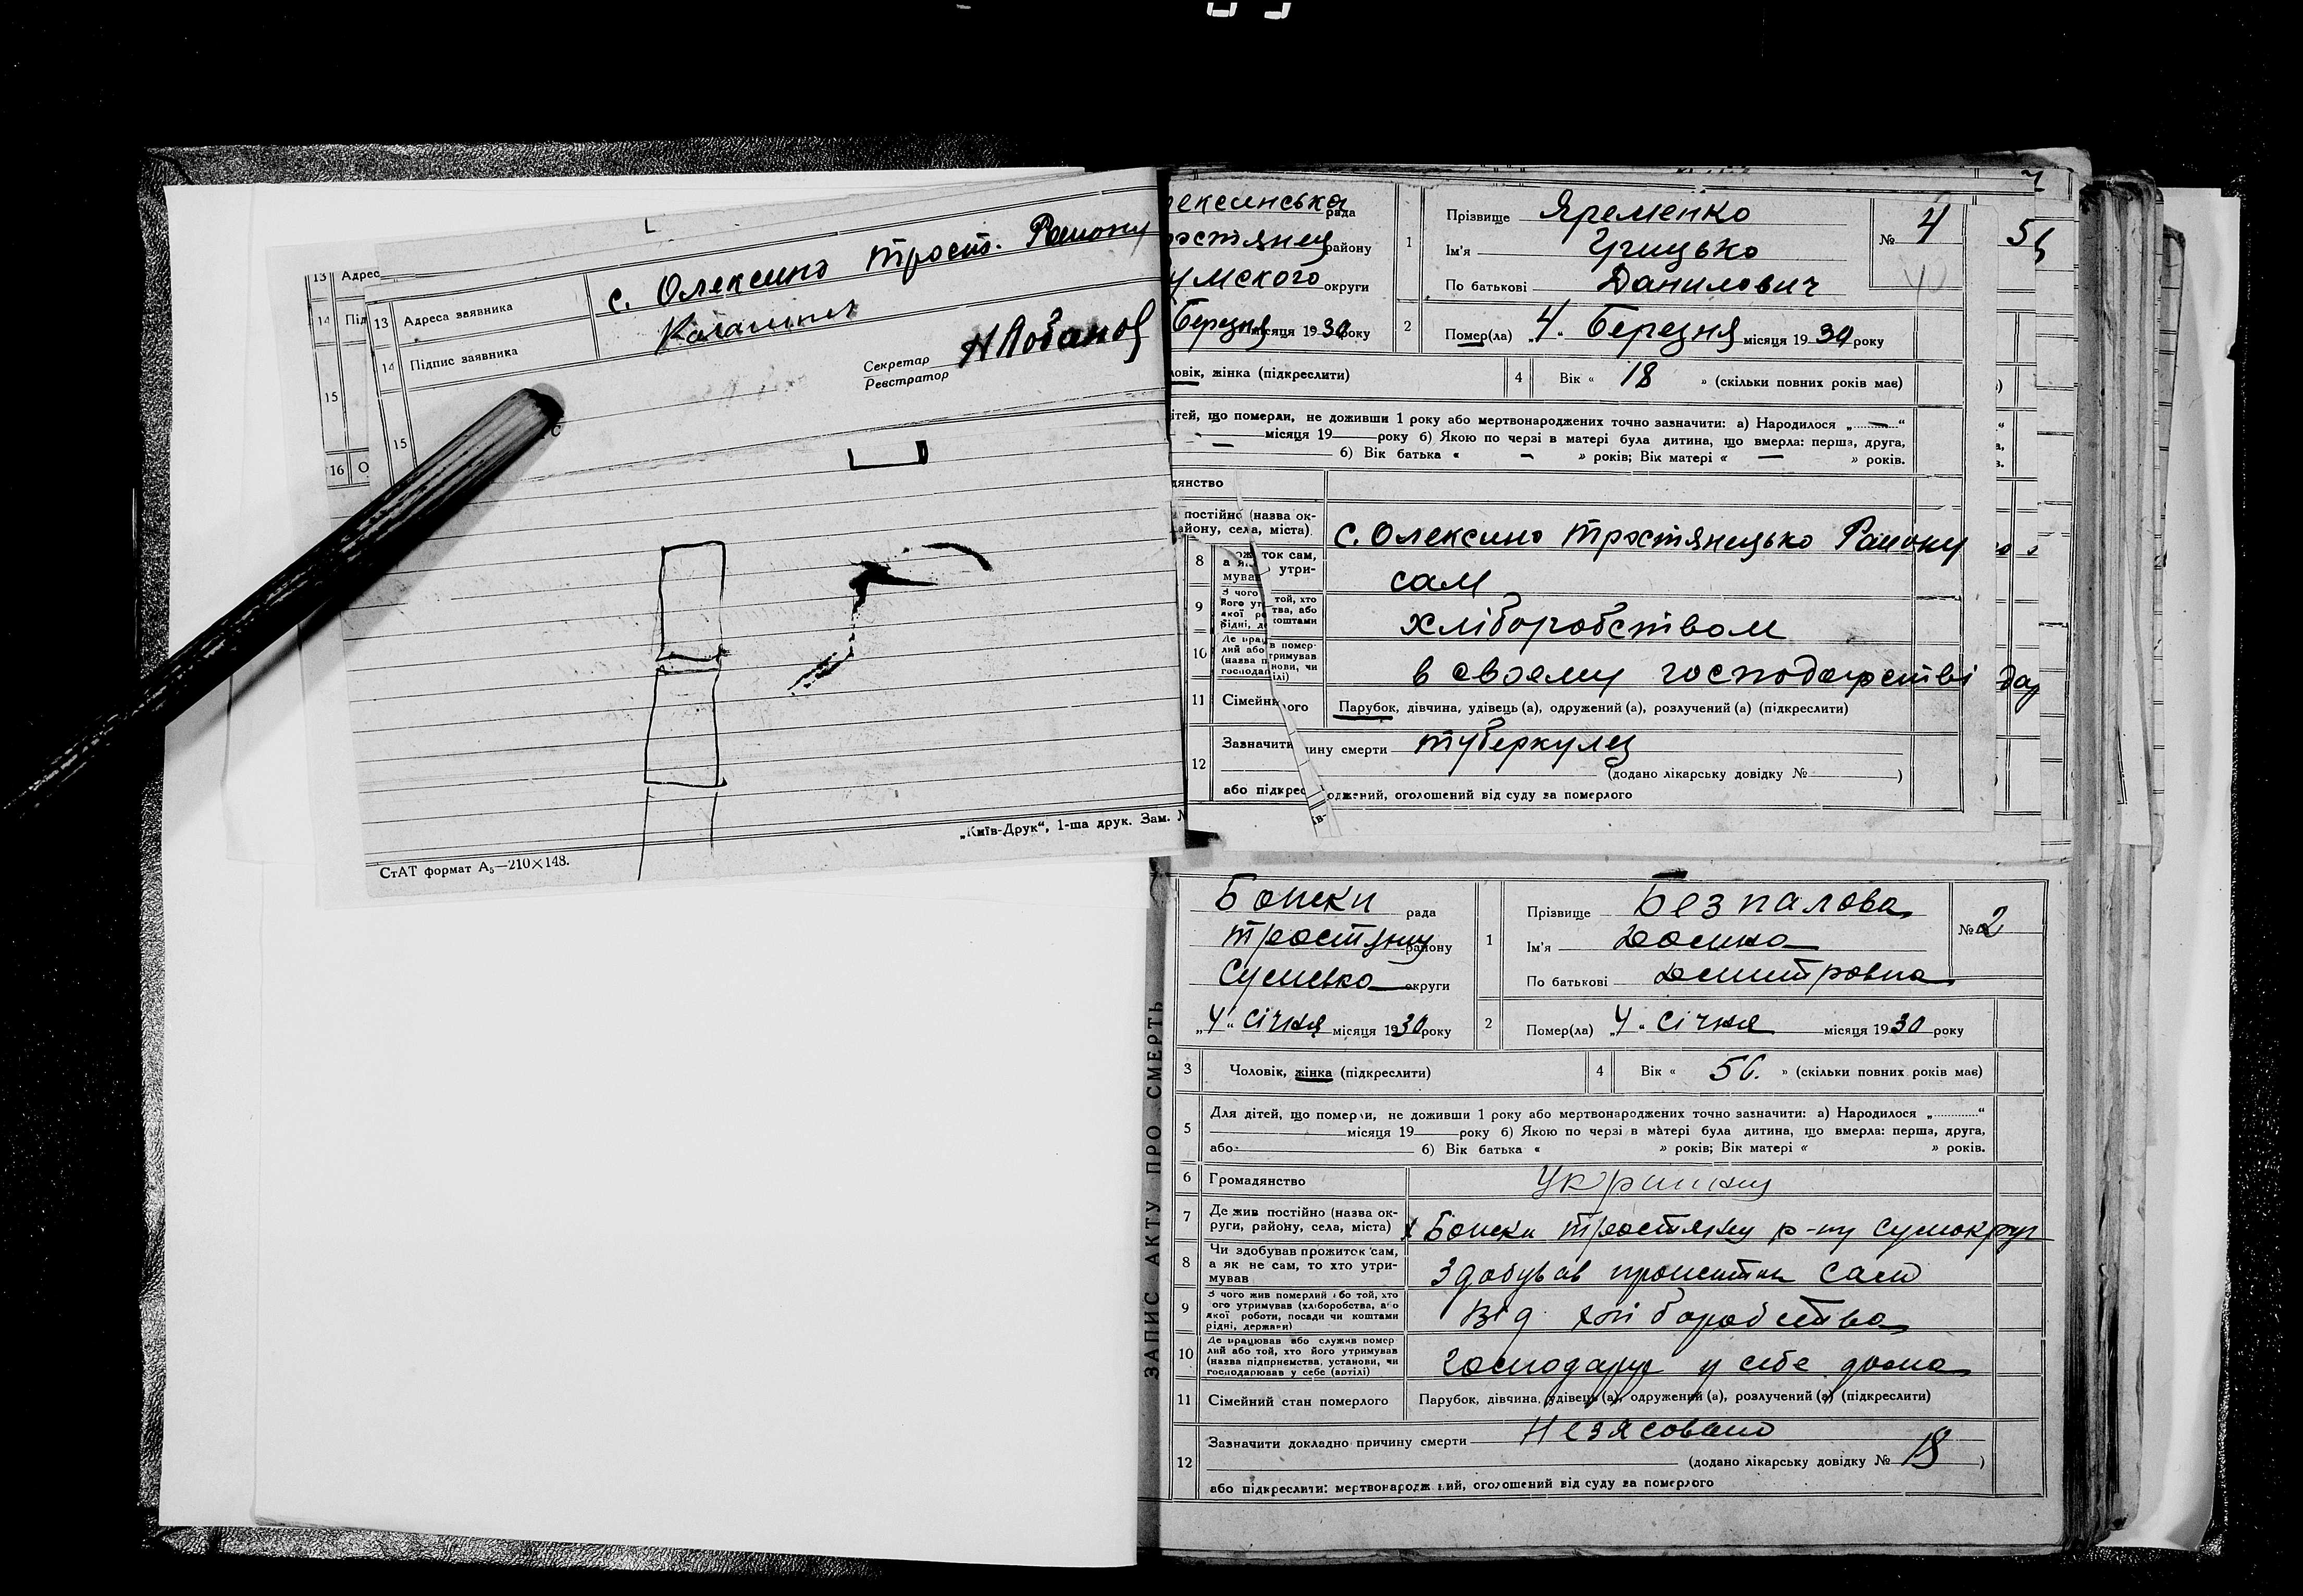 13 Адрес
14 Під
15
16 О
13 Адреса заявника с. Олексино трост. Району
14 Підпис заявника
Секретар
Реєстратор
Н Лобанов
15
„Київ-Друк“, 1-ша друк. Зам. №
СтАТ формат А₅—210×148.
лексинська рада
ростянец району
умского округи
Березня місяця 1930 року
1 Прізвище Яременко
Ім'я Грицько
По батькові Данилович
№ 4
2 Помер(ла) „4“ Березня місяця 1930 року
ловік, жінка (підкреслити)
4 Вік « 18 » (скільки повних років має)
ітей, що померли, не доживши 1 року або мертвонароджених точно зазначити: а) Народилося „ — “
— місяця 19 року б) Якою по черзі в матері була дитина, що вмерла: перша, друга,
б) Вік батька « — » років; Вік матері « — » років.
дянство
постійно (назва ок-
айону, села, міста)
с. Олексино тростянецько Району
8 ток сам,
утри-
мував
сам
9 З чого той, хто
хліборобством
10 Де прац в помер-
лий або
(назва п
господа
в своему господарстві
11 Сімейн ого Парубок, дівчина, удівець (а), одружений (а), розлучений (а) (підкреслити)
12 Зазначити ину смерти туберкулез
(додано лікарську довідку № )
або підкрес оджений, оголошений від суду за померлого
Боиски рада
тростянец району
Сумсько округи
„4“ січня місяця 1930 року
1 Прізвище Безпалова
Ім'я
По батькові Дмитровна
№ 2
2 Помер(ла) „4“ січня місяця 1930 року
3 Чоловік, жінка (підкреслити)
4 Вік « 56. » (скільки повних років має)
5 Для дітей, що померли, не доживши 1 року або мертвонароджених точно зазначити: а) Народилося „ “
місяця 19 року б) Якою по черзі в матері була дитина, що вмерла: перша, друга,
або б) Вік батька « » років; Вік матері « » років.
6 Громадянство
7 Де жив постійно (назва ок-
руги, району, села, міста)
р-ну
8 Чи здобував прожиток сам,
а як не сам, то хто утри-
мував
Здобував прожиток сам
9 З чого жив померлий або той, хто
ого утримував (хліборобства, або
якої роботи, посади чи коштами
рідні, держави)
від хліборобства
10 Де працював або служив помер
лий або той, хто його утримував
(назва підприємства, установи, чи
господарював у себе (артілі)
господарує у себе дома
11 Сімейний стан померлого Парубок, дівчина, удівець (а), одружений (а), розлучений (а) (підкреслити)
12 Зазначити докладно причину смерти Незясовано
(додано лікарську довідку № 18 )
або підкреслити: мертвонароджений, оголошений від суду за померлого
ЗАПИС АКТУ ПРО СМЕРТЬ